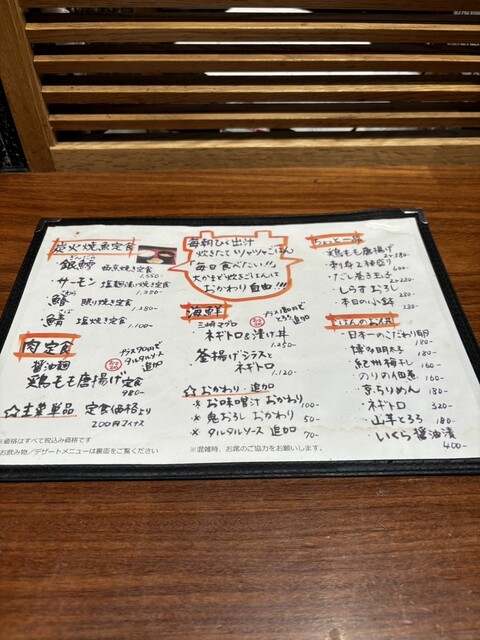 炭火焼魚定食
銀鱈 西京焼き定食
1,550-
サーモン 塩麹漬け焼き定食
1,380-
鰆 照り焼き定食
1,280-
さば
鯖 塩焼き定食
1,100-
肉定食
プラス70円で
タルタルソース
追加
醤油麹
鶏もも唐揚げ定食
980-
☆主菜単品 定食価格より
200円マイナス
※価格はすべて税込み価格です
お飲み物/デザートメニューは裏面をご覧ください
毎朝ひく出汁
炊きたてツヤツヤごはん
"毎日食べたい!!"
大かまどで炊るごはんは
おかわり自由!!!
海鮮
三崎マグロ
ネギトロ&漬け丼
1,250-
釜揚げシラスと
ネギトロ
1,120-
☆おかわり・追加
※お味噌汁 おかわり 100-
※鬼おろし おかわり 50-
※タルタルソース 追加 70-
※混雑時、お席のご協力をお願いします。
ちょっと一品
鶏もも唐揚げ
2ヶ380-
600-
だし巻き玉子
しらすおろし
本日の小鉢
ごはんのお供
日本一のこだわり卵
博多明太子 180-
紀州梅干し 160-
のりの佃煮 160-
京ちりめん 180-
ネギトロ 320-
山芋とろろ 180-
いくら醤油漬
400-